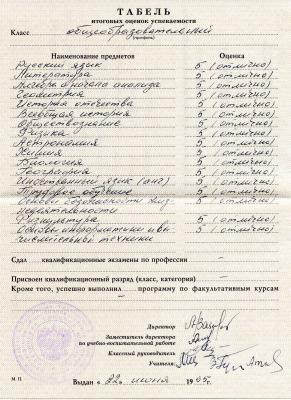 ТАБЕЛЬ
итоговых оценок успеваемости
Класс общеобразовательный
(профиль)
Наименование предметов Оценка
Русский язык 5 (отлично)
Литература 5 (отлично)
Алгебра и начала анализа 5 (отлично)
Геометрия 5 (отлично)
История отечества 5 (отлично)
Всеобщая история 5 (отлично)
Обществознание 5 (отлично)
Физика 5 (отлично)
Астрономия 5 (отлично)
Химия 5 (отлично)
Биология 5 (отлично)
География 5 (отлично)
Иностранный язык (анг) 5 (отлично)
Трудовое обучение 5 (отлично)
Основы безопасности жиз-
недеятельности 5 (отлично)
Физкультура 5 (отлично)
Основы информатики и вы-
числительной техники 5 (отлично)
Сдал квалификационные экзамены по профессии —
Присвоен квалификационный разряд (класс, категория) —
Кроме того, успешно выполнил программу по факультативным курсам
—
Директор
Заместитель директора
по учебно-воспитательной работе
Классный руководитель
Учителя:
М П Выдан « 22 » июня 19 95 г.